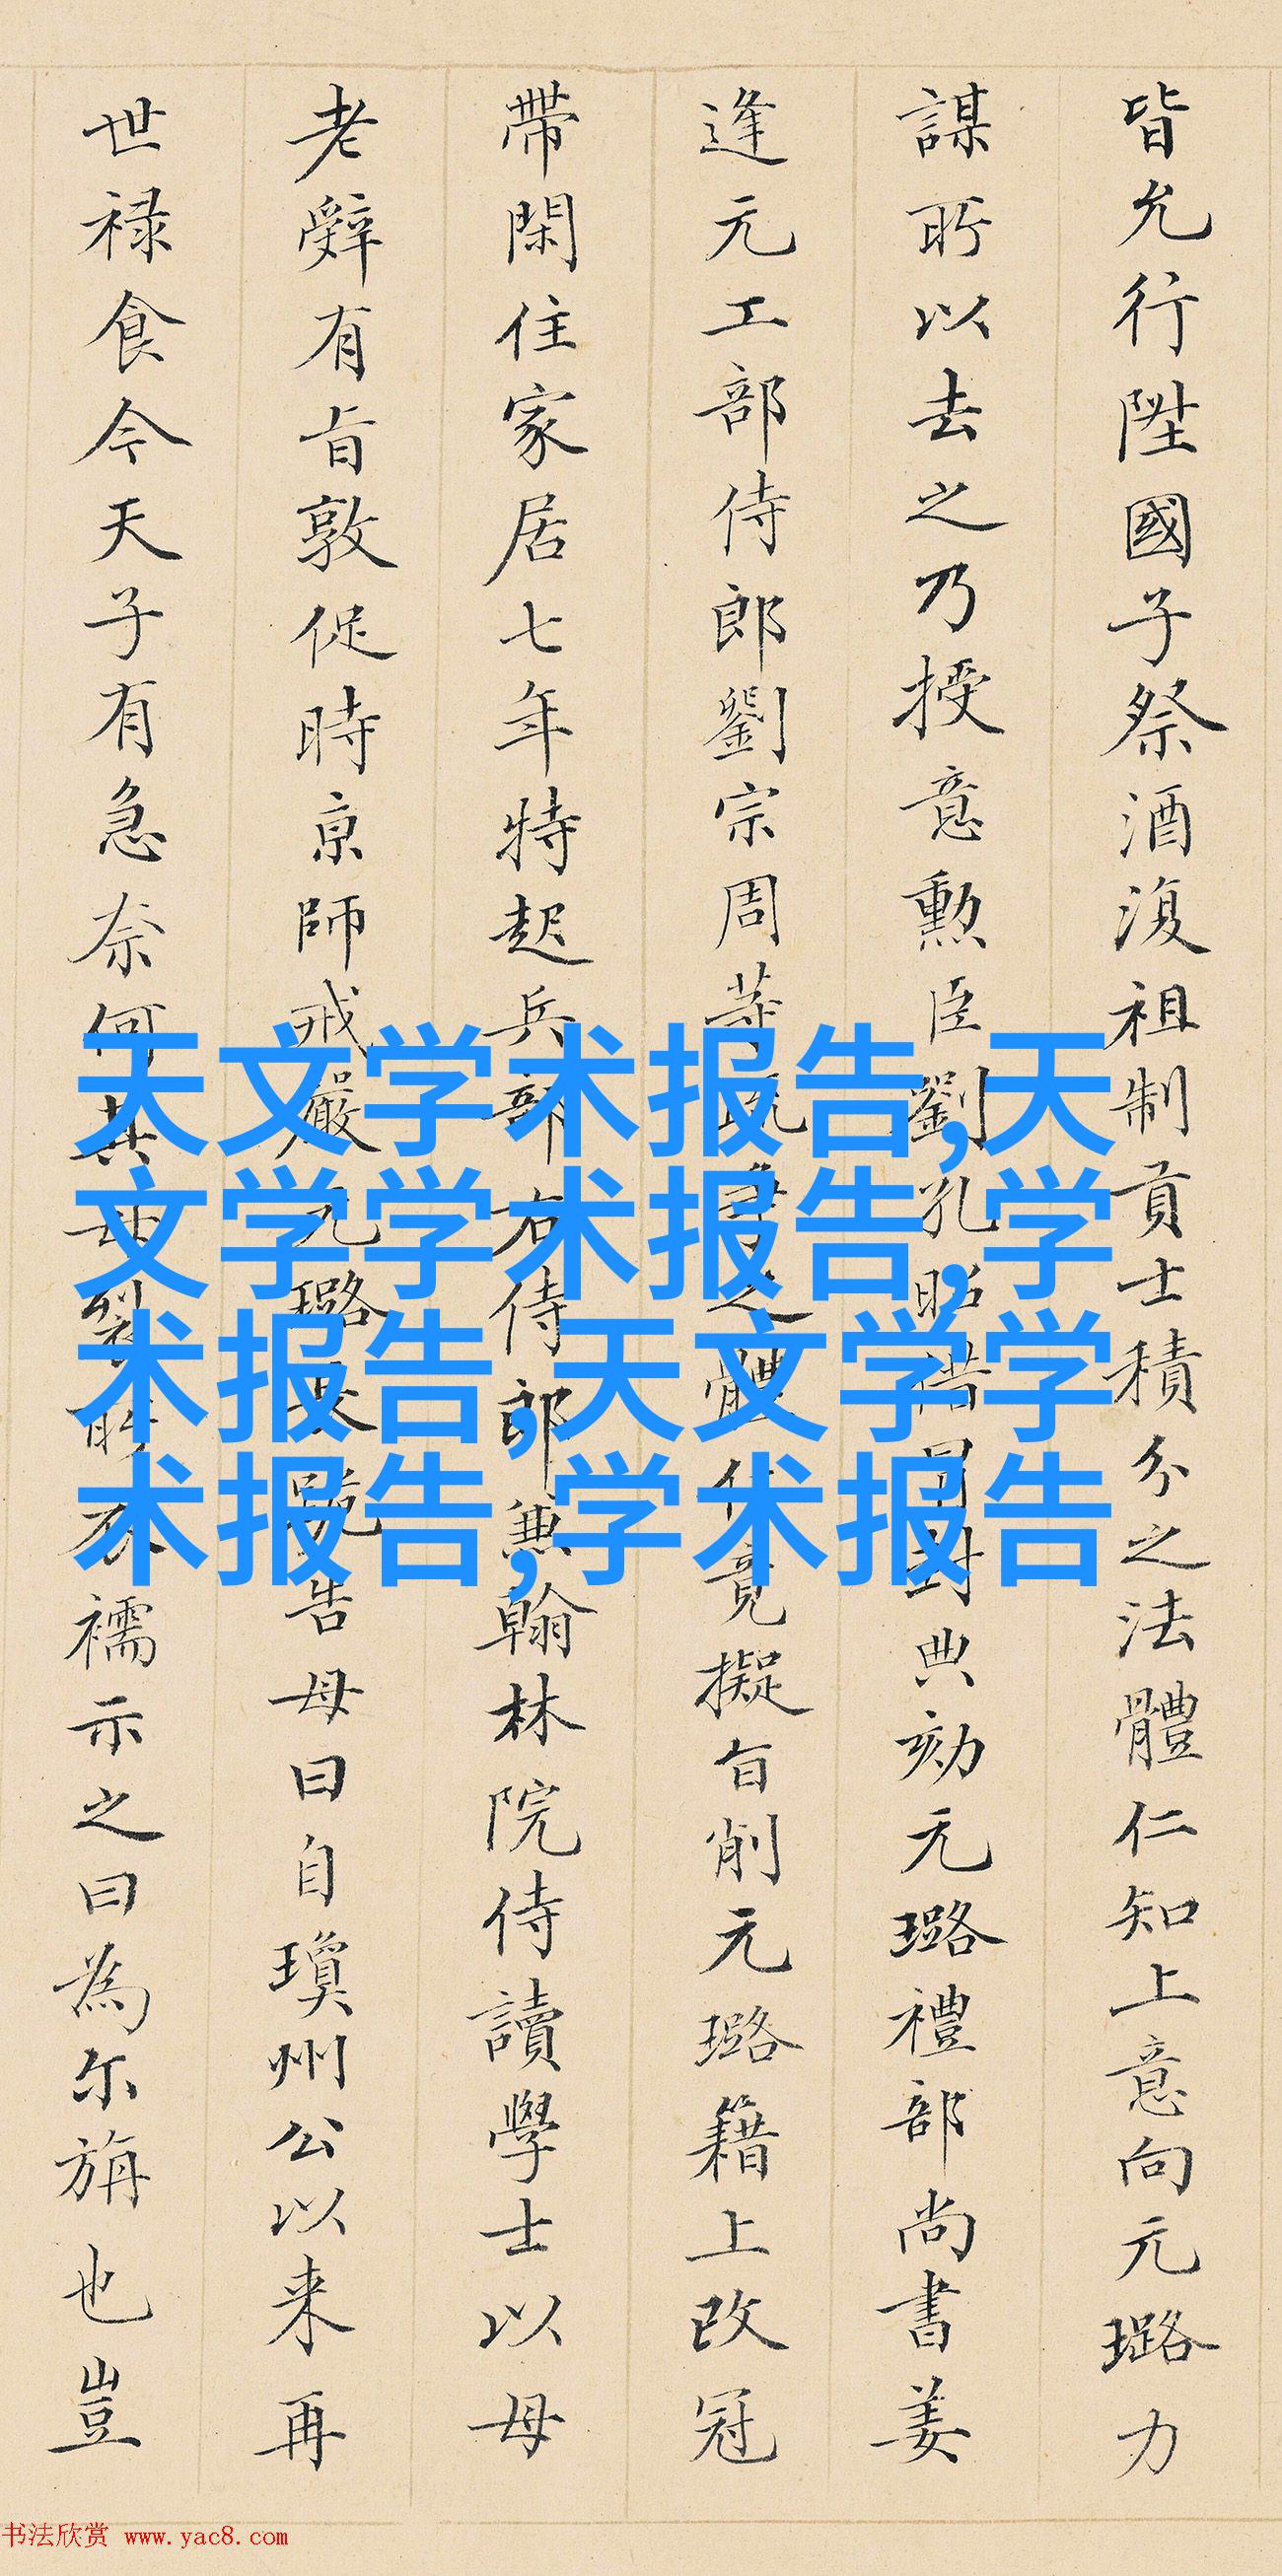 皆允行陞國子祭酒復祖制貢士積分之法體仁知上意向元璐力
謀所以去之乃授意勲臣劉孔昭 封典劾元璐禮部尚書姜
逢元工部侍郎劉宗周 體仁竟擬旨削元璐籍上改冠
帶閑住家居七年特起兵部右侍郎兼翰林院侍讀學士以母
老辭有旨敦促時京師戒嚴元璐 跪告母曰自瓊州公以来再
世禄食今天子有急奈何其 裂 襦示之曰為尔旃也豈
天文学术报告,天
文学学术报告,学
术报告,天文学学
术报告,学术报告
书法欣赏 www.yac8.com